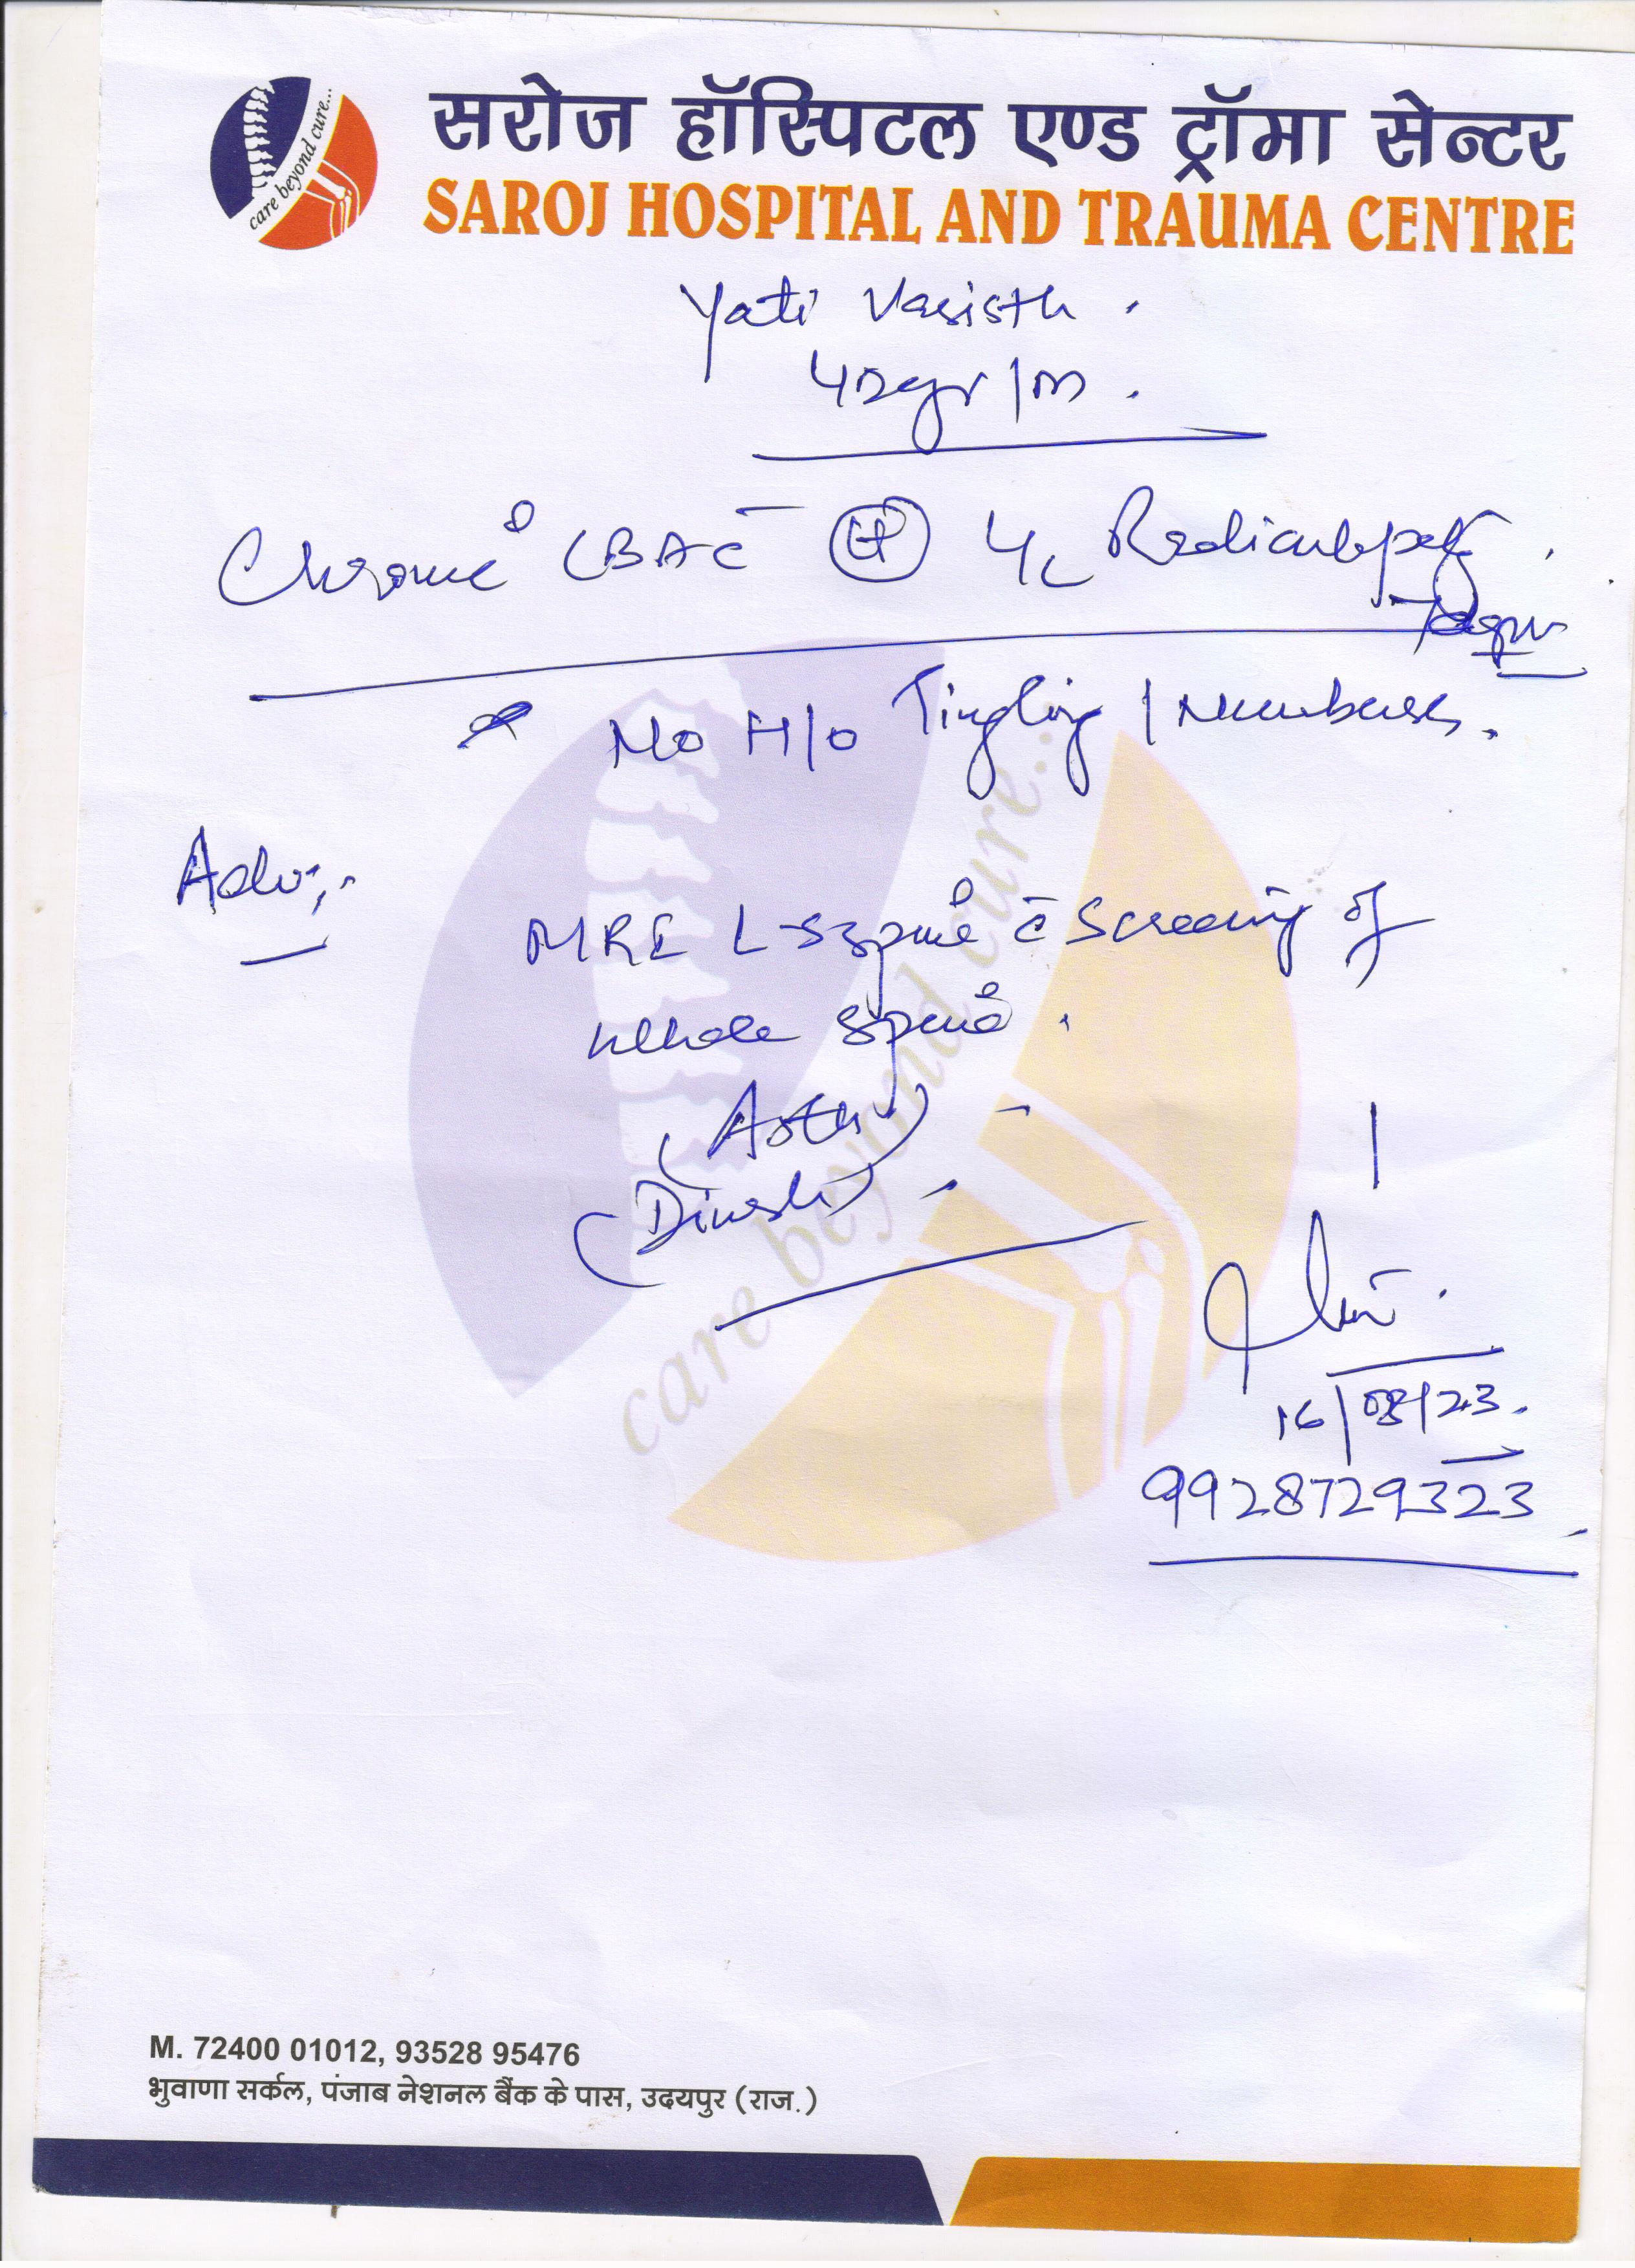 care beyond cure...
सरोज हॉस्पिटल एण्ड ट्रॉमा सेन्टर
SAROJ HOSPITAL AND TRAUMA CENTRE
Yati Vasisth.
42yr/M.
Chronic LBA c̄ L/L Radiculopathy.
* No H/o Tingling / Numbness.
Adv:-
MRI L-S Spine c̄ Screening of
Whole Spine.
(Dinesh)
16/08/23.
9928729323
care beyond cure...
M. 72400 01012, 93528 95476
भुवाणा सर्कल, पंजाब नेशनल बैंक के पास, उदयपुर (राज.)